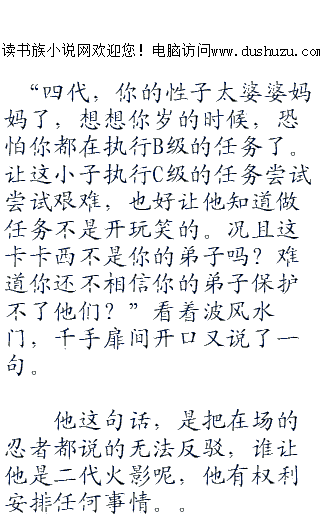 读书族小说网欢迎您！电脑访问www.dushuzu.com
“四代，你的性子太婆婆妈
妈了，想想你岁的时候，恐
怕你都在执行B级的任务了。
让这小子执行C级的任务尝试
尝试艰难，也好让他知道做
任务不是开玩笑的。况且这
卡卡西不是你的弟子吗？难
道你还不相信你的弟子保护
不了他们？”看着波风水
门，千手扉间开口又说了一
句。
他这句话，是把在场的
忍者都说的无法反驳，谁让
他是二代火影呢，他有权利
安排任何事情。。